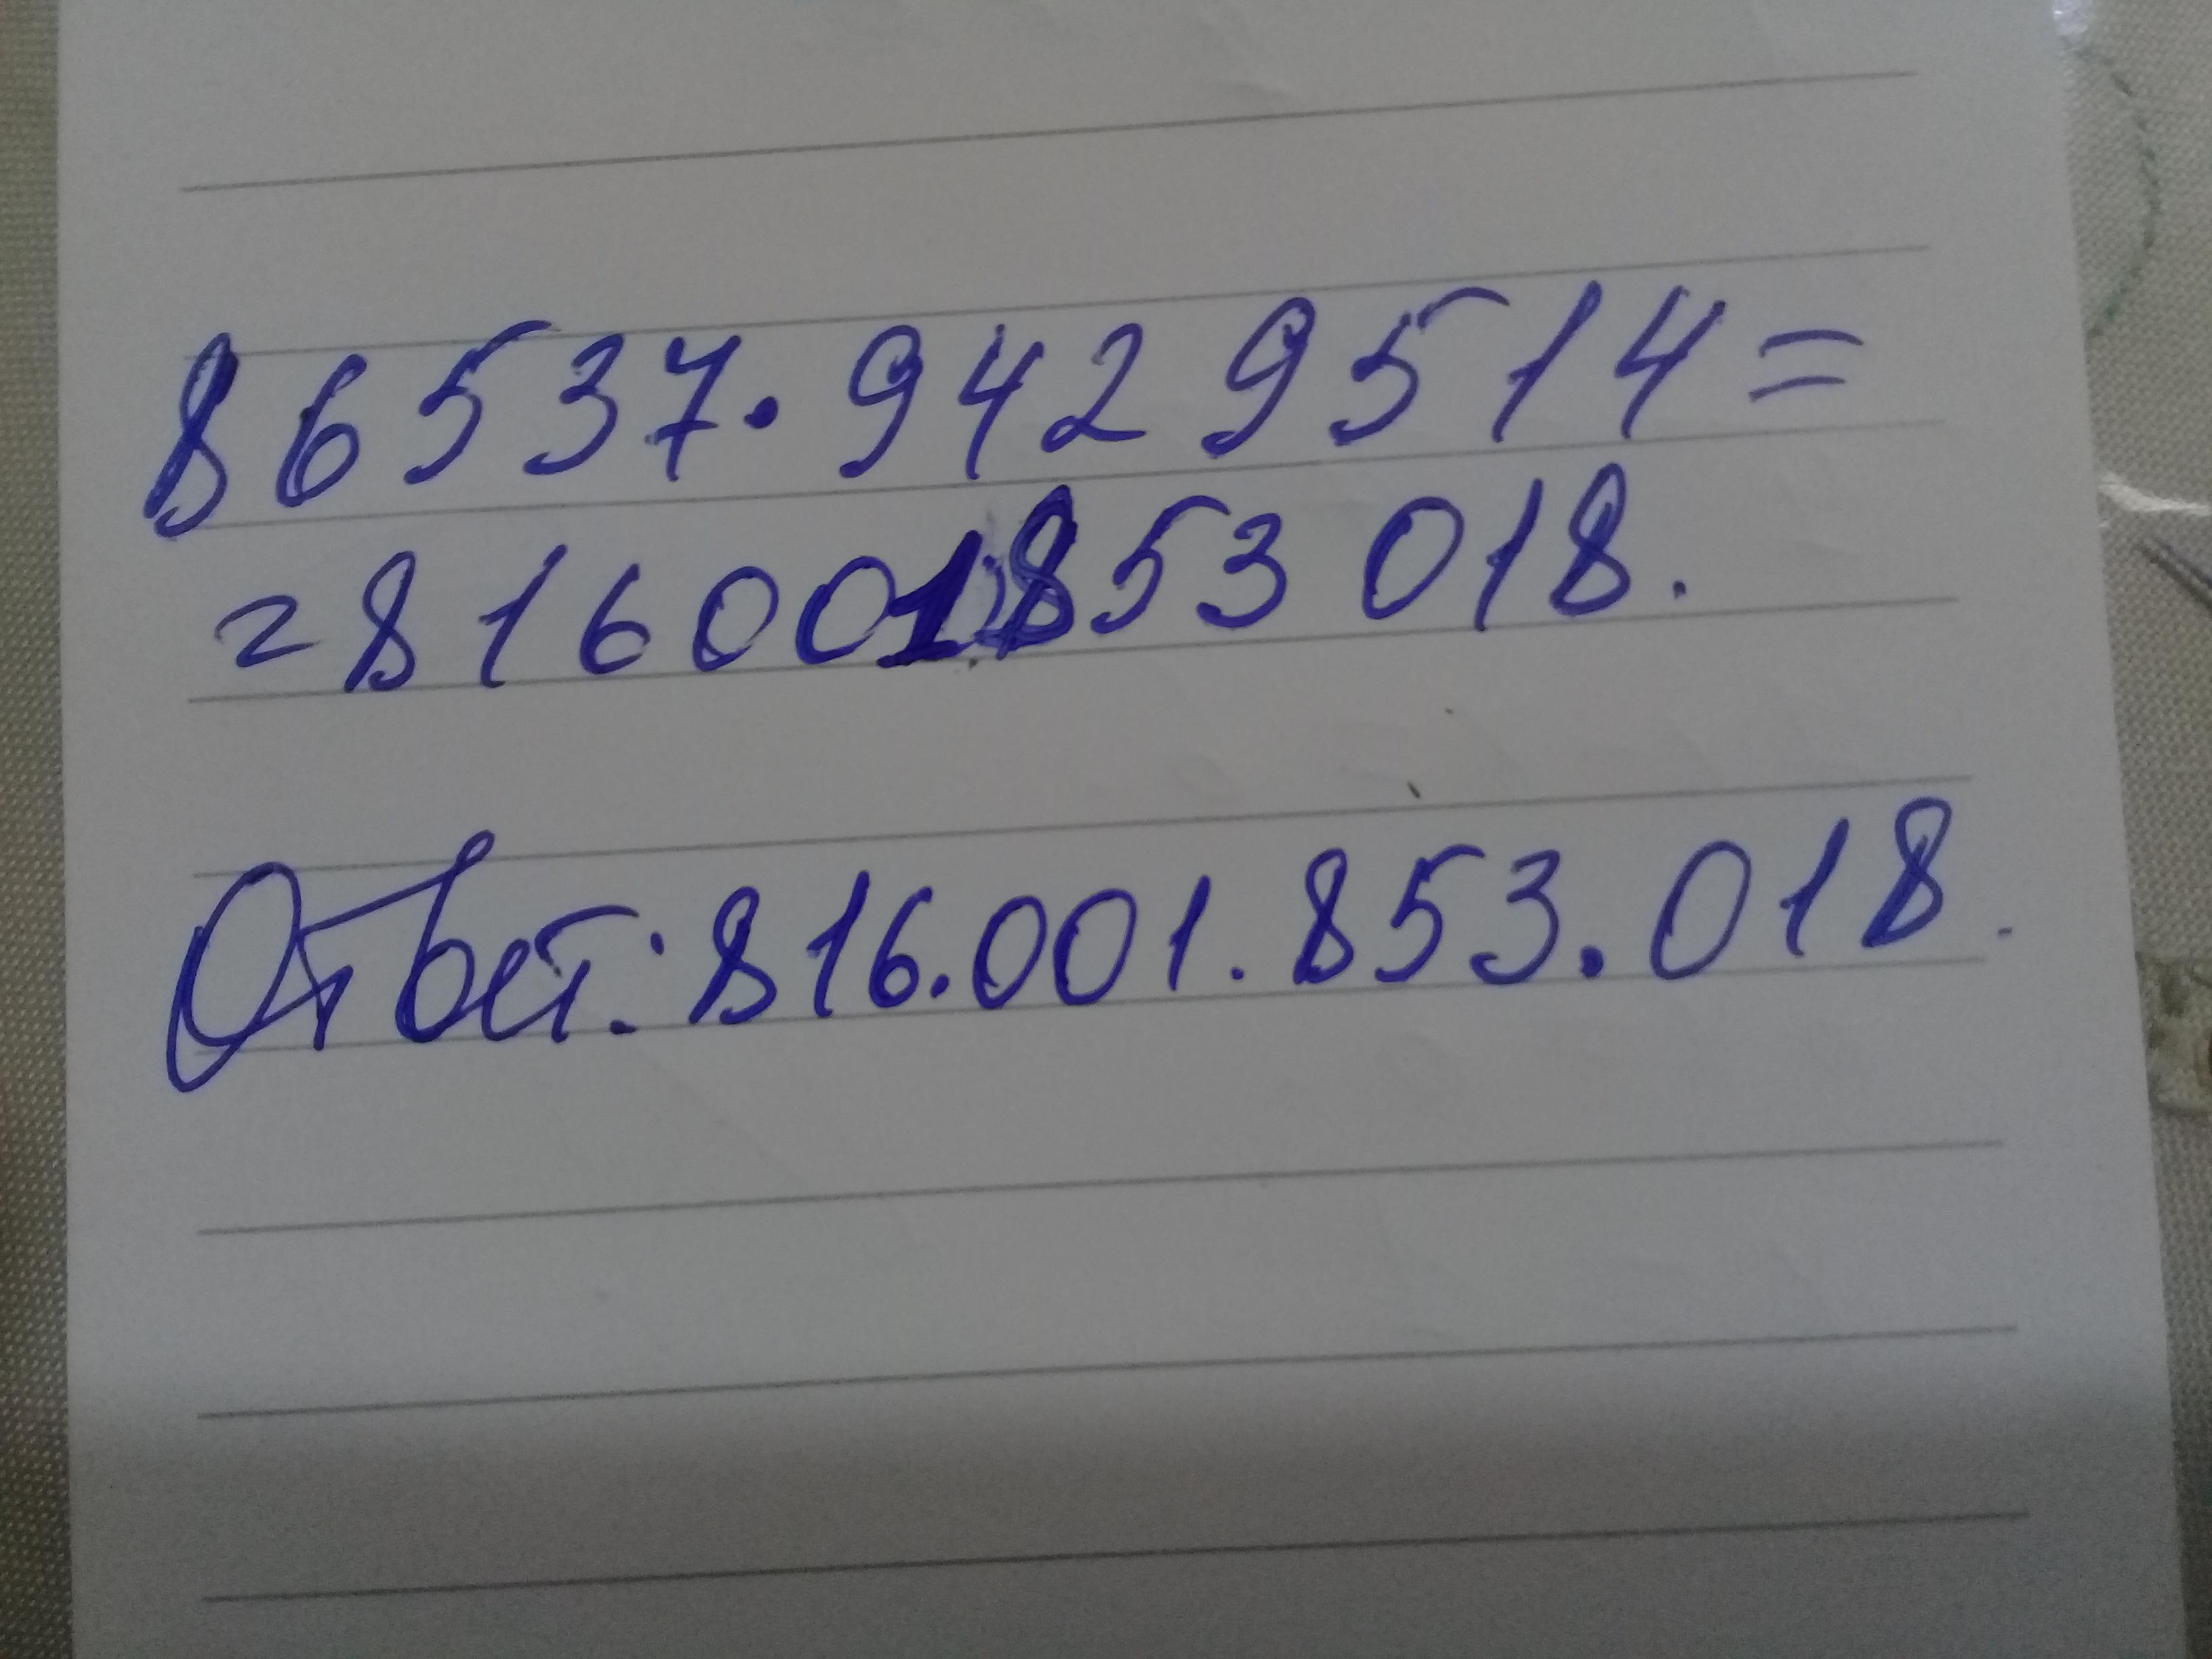 86537·9429514=
=816001853018.
Ответ: 816.001.853.018.